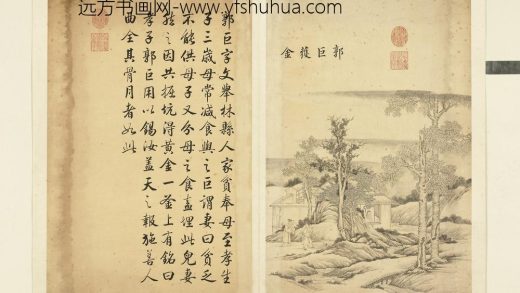 远方书画网-www.yfshuhua.com
郭巨獲金
郭巨字文舉林縣人家貧奉母至孝生
子三歲母常減食與之巨謂妻曰貧乏
不能供母子又分母之食盍埋此兒妻
從之因共掘坑得黃金一釜上有銘曰
孝子郭巨用以錫汝蓋天之報施善人
曲全其骨月者如此